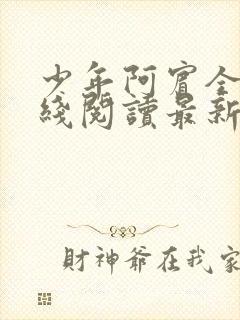 少年阿宾全
綫閱讀最新
財神爺在我家